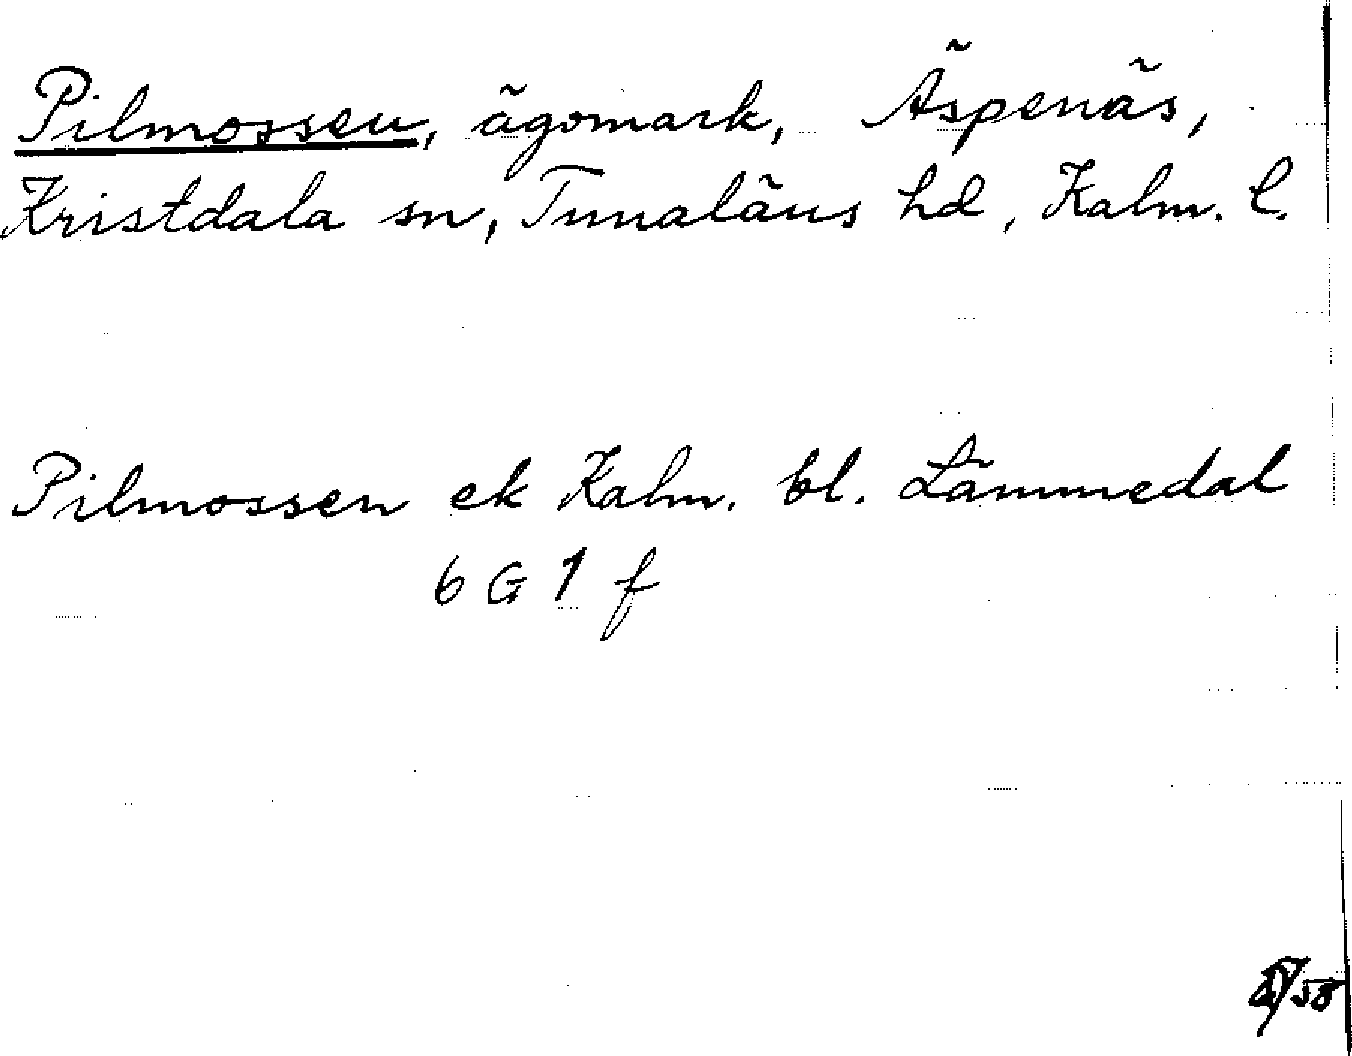 Pilmossen, ägomark, Äspenäs,
Kristdala sn, Tunaläns hd, Kalm. l.
Pilmossen ek Kalm. bl. Lämmedal
6 G 1 f